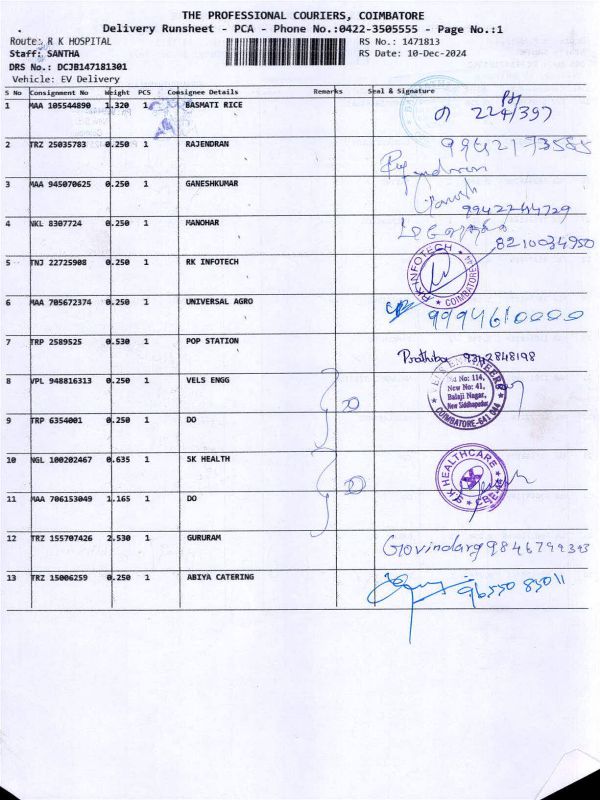 THE PROFESSIONAL COURIERS, COIMBATORE
Delivery Runsheet - PCA - Phone No.:0422-3505555 - Page No.:1
Route: R K HOSPITAL
RS No.: 1471813
Staff: SANTHA
RS Date: 10-Dec-2024
DRS No.: DCJB147181301
Vehicle: EV Delivery
S No Consignment No Weight PCS Consignee Details Remarks Seal & Signature
1 MAA 105544890 1.320 1 BASMATI RICE 224/397
2 TRZ 25035783 0.250 1 RAJENDRAN 9942173585
3 MAA 945070625 0.250 1 GANESHKUMAR Ganesh 9942244729
4 NKL 8307724 0.250 1 MANOHAR 8210034950
5 TNJ 22725908 0.250 1 RK INFOTECH RK INFOTECH COIMBATORE
6 MAA 705672374 0.250 1 UNIVERSAL AGRO 9994610000
7 TRP 2589525 0.530 1 POP STATION Prathiba 9342848198
8 VPL 948816313 0.250 1 VELS ENGG VELS ENGINEERS
Old No: 114,
New No: 41,
Balaji Nagar,
New Siddhapudur
COIMBATORE-641 044
9 TRP 6354001 0.250 1 DO
10 NGL 100202467 0.635 1 SK HEALTH SK HEALTHCARE CBE-44
11 MAA 706153049 1.165 1 DO
12 TRZ 155707426 2.530 1 GURURAM Govindaraj 9846799393
13 TRZ 15006259 0.250 1 ABIYA CATERING 9655085011